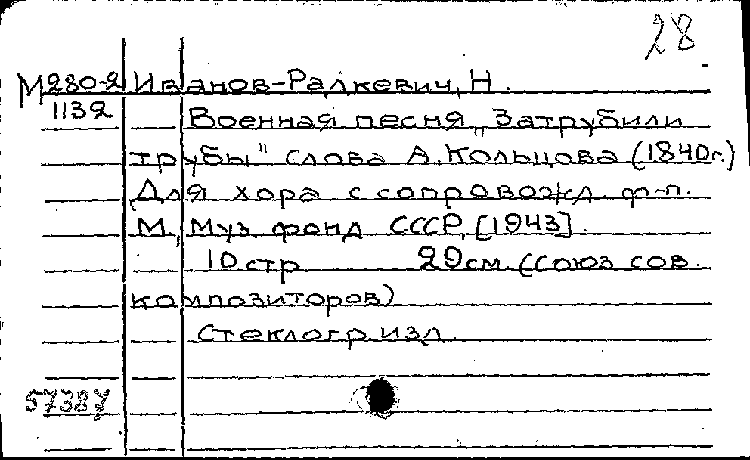 28
М280-2 Иванов-Радкевич, Н.
1132
Военная песня „Затрубили
трубы" слова А. Кольцова (1840г.)
Для хора с сопровожд. ф-п.
М., Муз. фонд СССР, [1943].
10 стр. 29 см. (Союз сов.
композиторов)
Стеклогр. изд.
57387